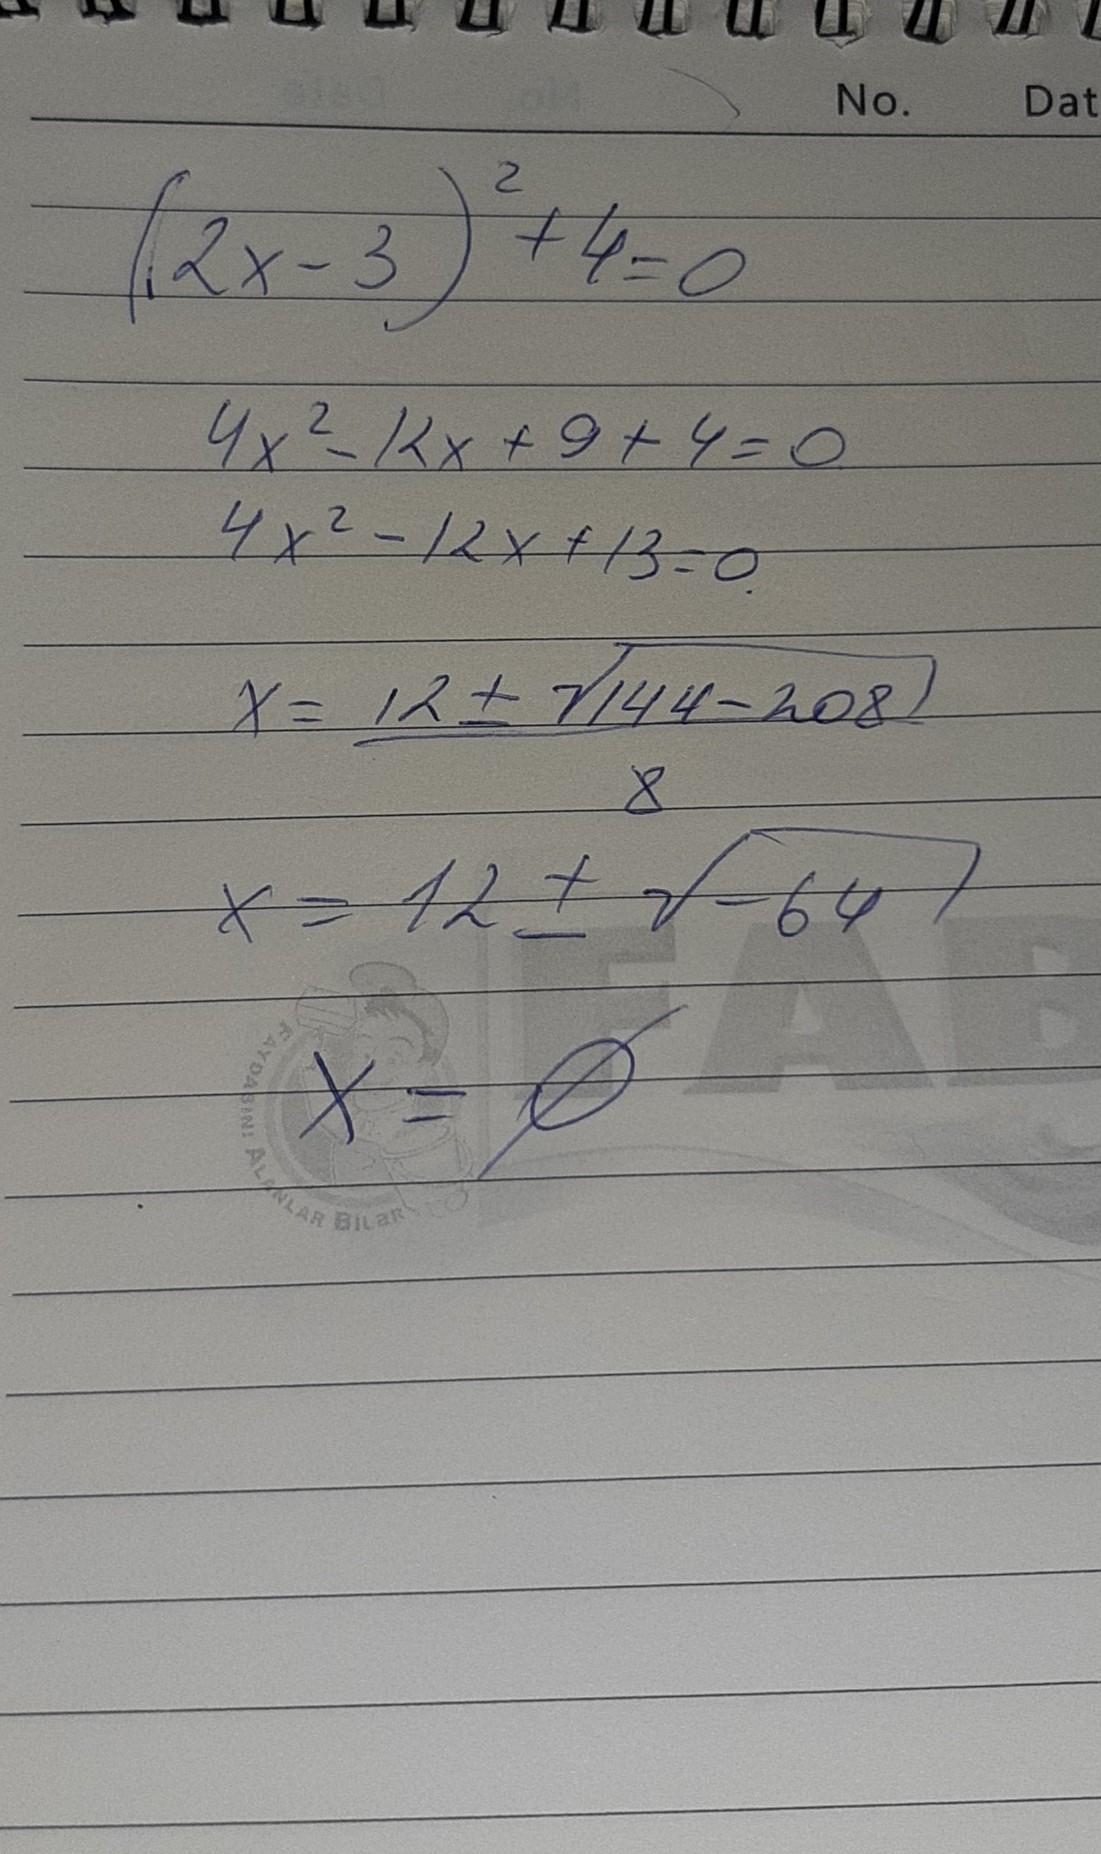 No. Dat
(2x-3)² + 4 = 0
4x² - 12x + 9 + 4 = 0
4x² - 12x + 13 = 0
x = 12 ± √144 - 208
8
x = 12 ± √-64
x = ∅
FAB
FAYDASINI ALANLAR BİLƏR